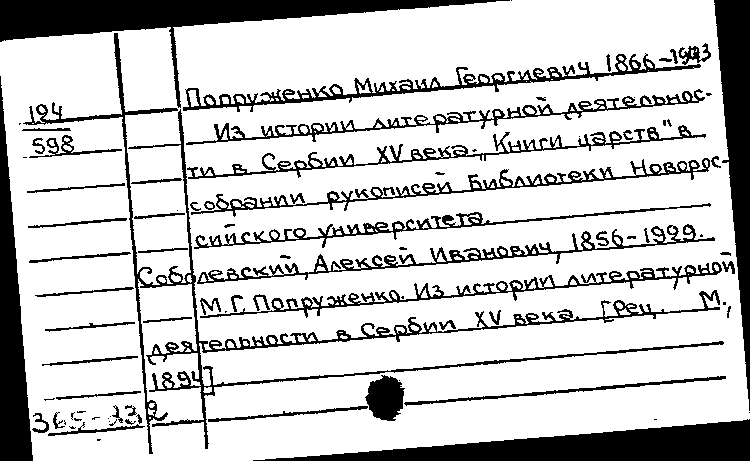 Попруженко, Михаил Георгиевич, 1866-1943
194
598
Из истории литературной деятельнос-
ти в Сербии XV века. „Книги царств" в
собрании рукописей Библиотеки Новорос-
сийского университета.
Соболевский, Алексей Иванович, 1856-1929.
М.Г. Попруженко. Из истории литературной
деятельности в Сербии XV века. [Рец. М.,
1894].
365-232